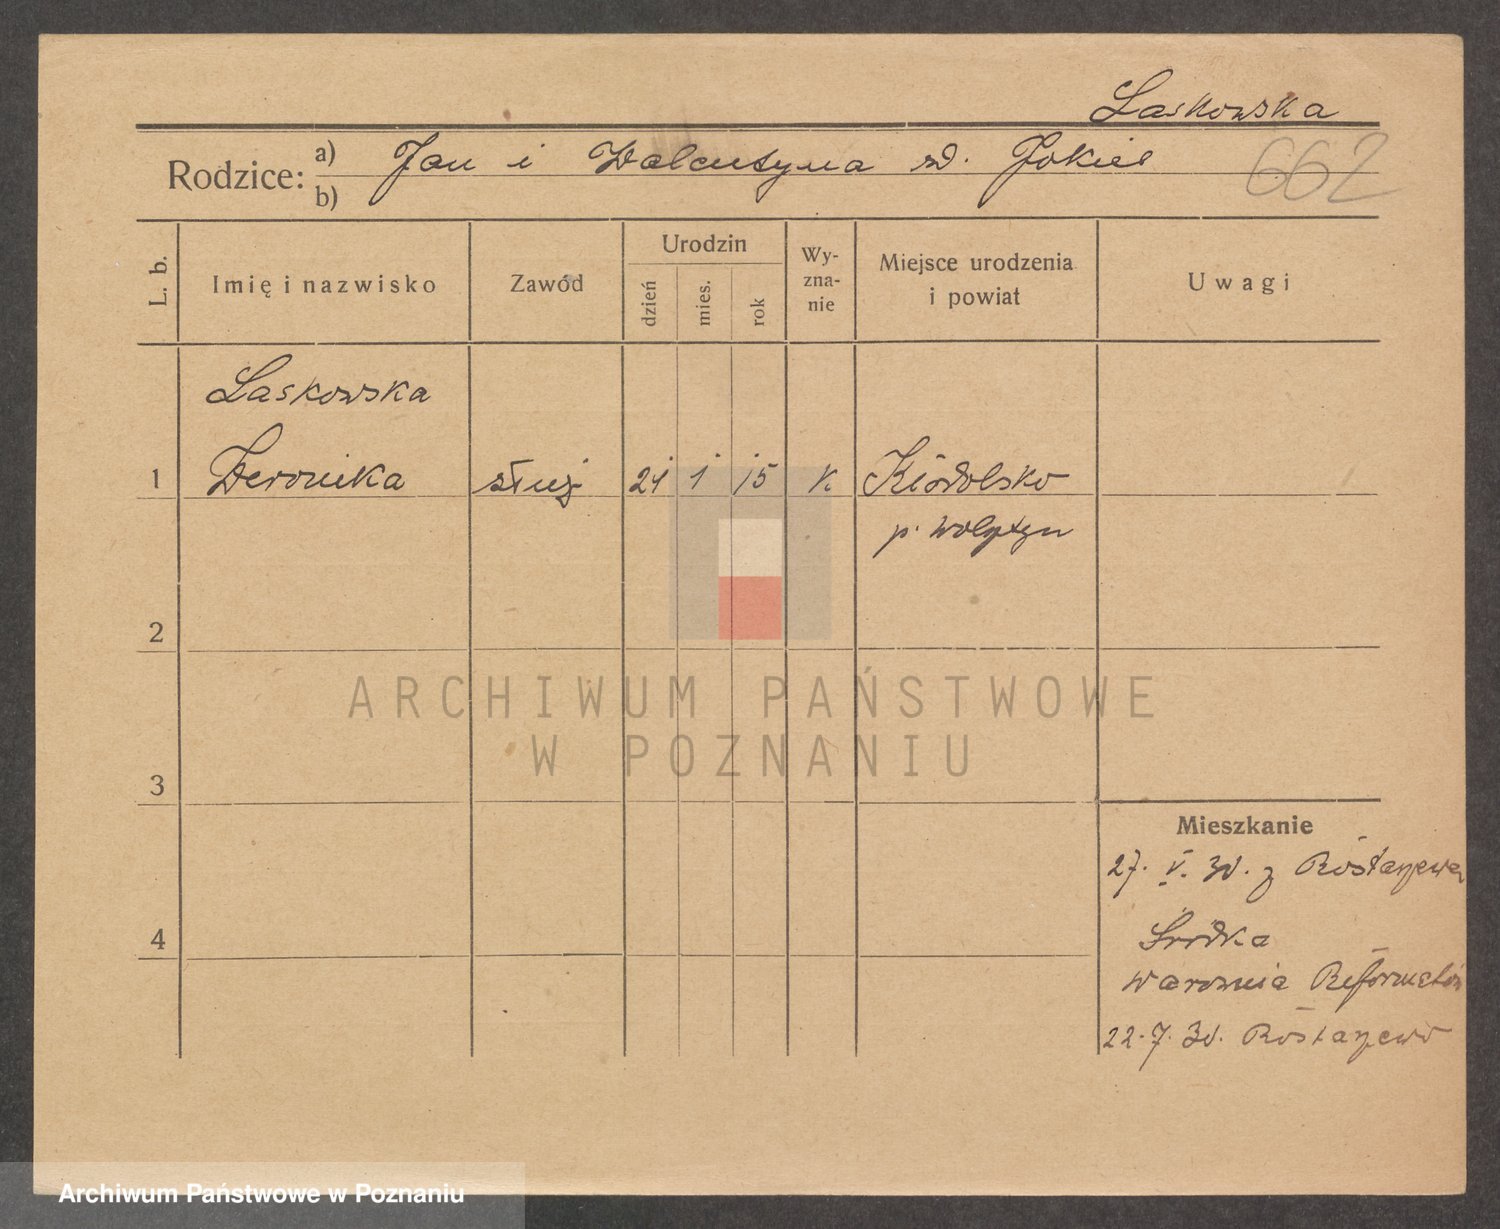 Laskowska
Rodzice: a) Jan i Walentyna zd. Jokiel
b)
662
L. b.
Imię i nazwisko
Zawód
Urodzin
dzień
mies.
rok
Wy-
zna-
nie
Miejsce urodzenia
i powiat
Uwagi
Laskowska
1 Weronika służ 21 1 15 k.
p. Wolsztyn
2
3
4
Mieszkanie
27. V. 30. z Rostarzewa
Śródka
warownia Reformatów
22. 7. 30. Rostarzewo
ARCHIWUM PAŃSTWOWE
W POZNANIU
Archiwum Państwowe w Poznaniu